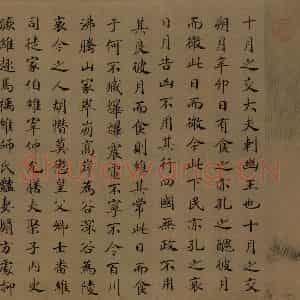 十月之交大夫刺幽王也十月之交
朔月辛卯日有食之亦孔之醜彼月
而微此日而微今此下民亦孔之哀
日月告凶不用其行四國無政不用
其良彼月而食則維其常此日而食
于何不臧爗爗震電不寧不令百川
沸騰山冢崒崩高岸為谷深谷為陵
哀今之人胡憯莫懲皇父卿士番維
司徒家伯維宰仲允膳夫棸子內史
蹶維趣馬楀維師氏豔妻煽方處抑
Shufawang.cn